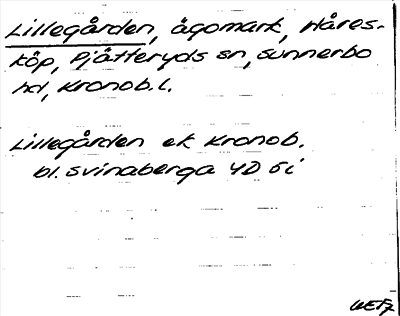 Lillegården, ägomark, Håres-
köp, Pjätteryds sn, Sunnerbo
hd, Kronob. l.
Lillegården ek Kronob.
bl. Svinaberga 4D 6i